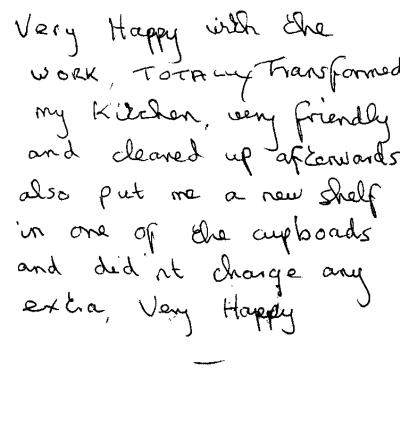 Very Happy with the
WORK, TOTALLY Transformed
my Kitchen, very friendly
and cleaned up afterwards
also put me a new shelf
in one of the cupboads
and did'nt charge any
extra, Very Happy